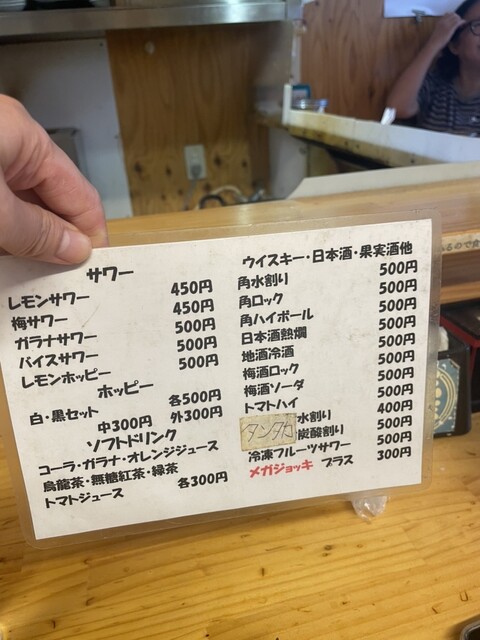 サワー
レモンサワー 450円
梅サワー 450円
ガラナサワー 500円
バイスサワー 500円
レモンホッピー 500円
ホッピー
白・黒セット 各500円
中300円 外300円
ソフトドリンク
コーラ・ガラナ・オレンジジュース
烏龍茶・無糖紅茶・緑茶
トマトジュース 各300円
ウイスキー・日本酒・果実酒他
角水割り 500円
角ロック 500円
角ハイボール 500円
日本酒熱燗 500円
地酒冷酒 500円
梅酒ロック 500円
梅酒ソーダ 500円
トマトハイ 500円
タンタカ 水割り 400円
炭酸割り 500円
冷凍フルーツサワー 500円
メガジョッキ プラス 300円